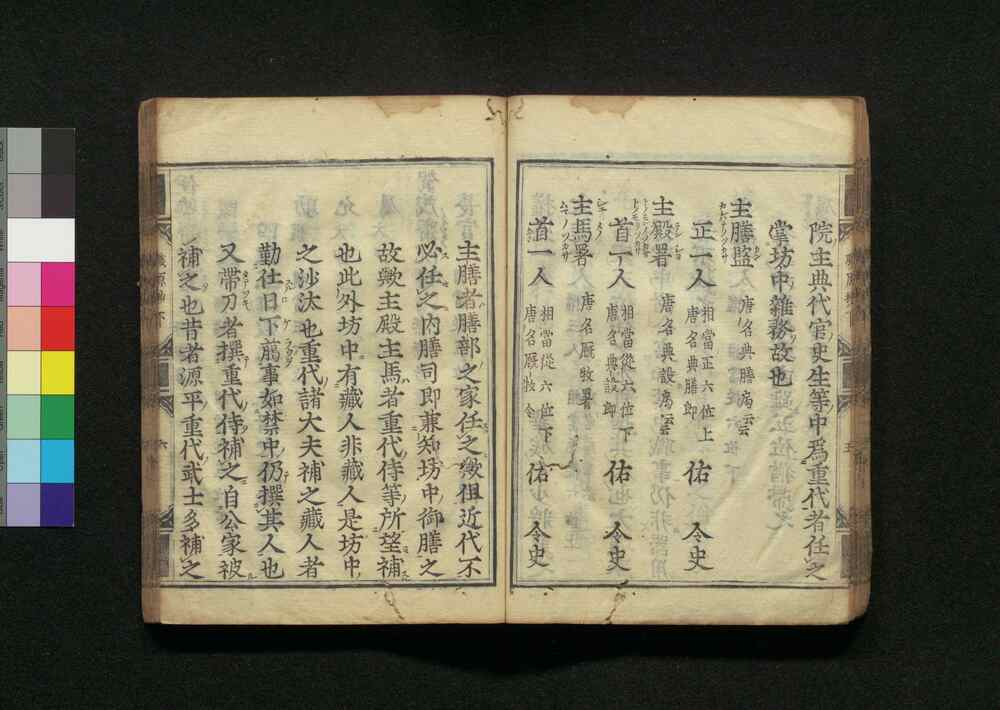 院主典代官史生等中為重代者任之
掌坊中雑務故也
主膳監 唐名典膳局云云
正一人 相當正六位上 唐名典膳郎 佑 令史
主殿署 唐名典設局云云
首一人 相當從六位下 唐名典設郎 佑 令史
主馬署 唐名厩牧署
首一人 相當從六位下 唐名厩牧令 佑 令史
主膳者膳部之家任之歟但近代不
必任之内膳司即兼知坊中御膳之
故歟主殿主馬者重代侍等所望補
也此外坊中有藏人非藏人是坊中
之沙汰也重代諸大夫補之藏人者
勤仕日下﨟事如禁中仍撰其人也
又帶刀者撰重代侍補之自公家被
補之也昔者源平重代武士多補之